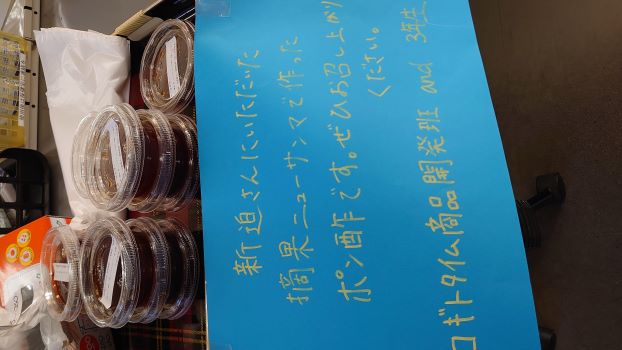 新迫さんにいただいた
摘果ニューサンマで作った
ポン酢です。ぜひお召し上がり
ください。
コギトタイム商品開発班 and 3年生